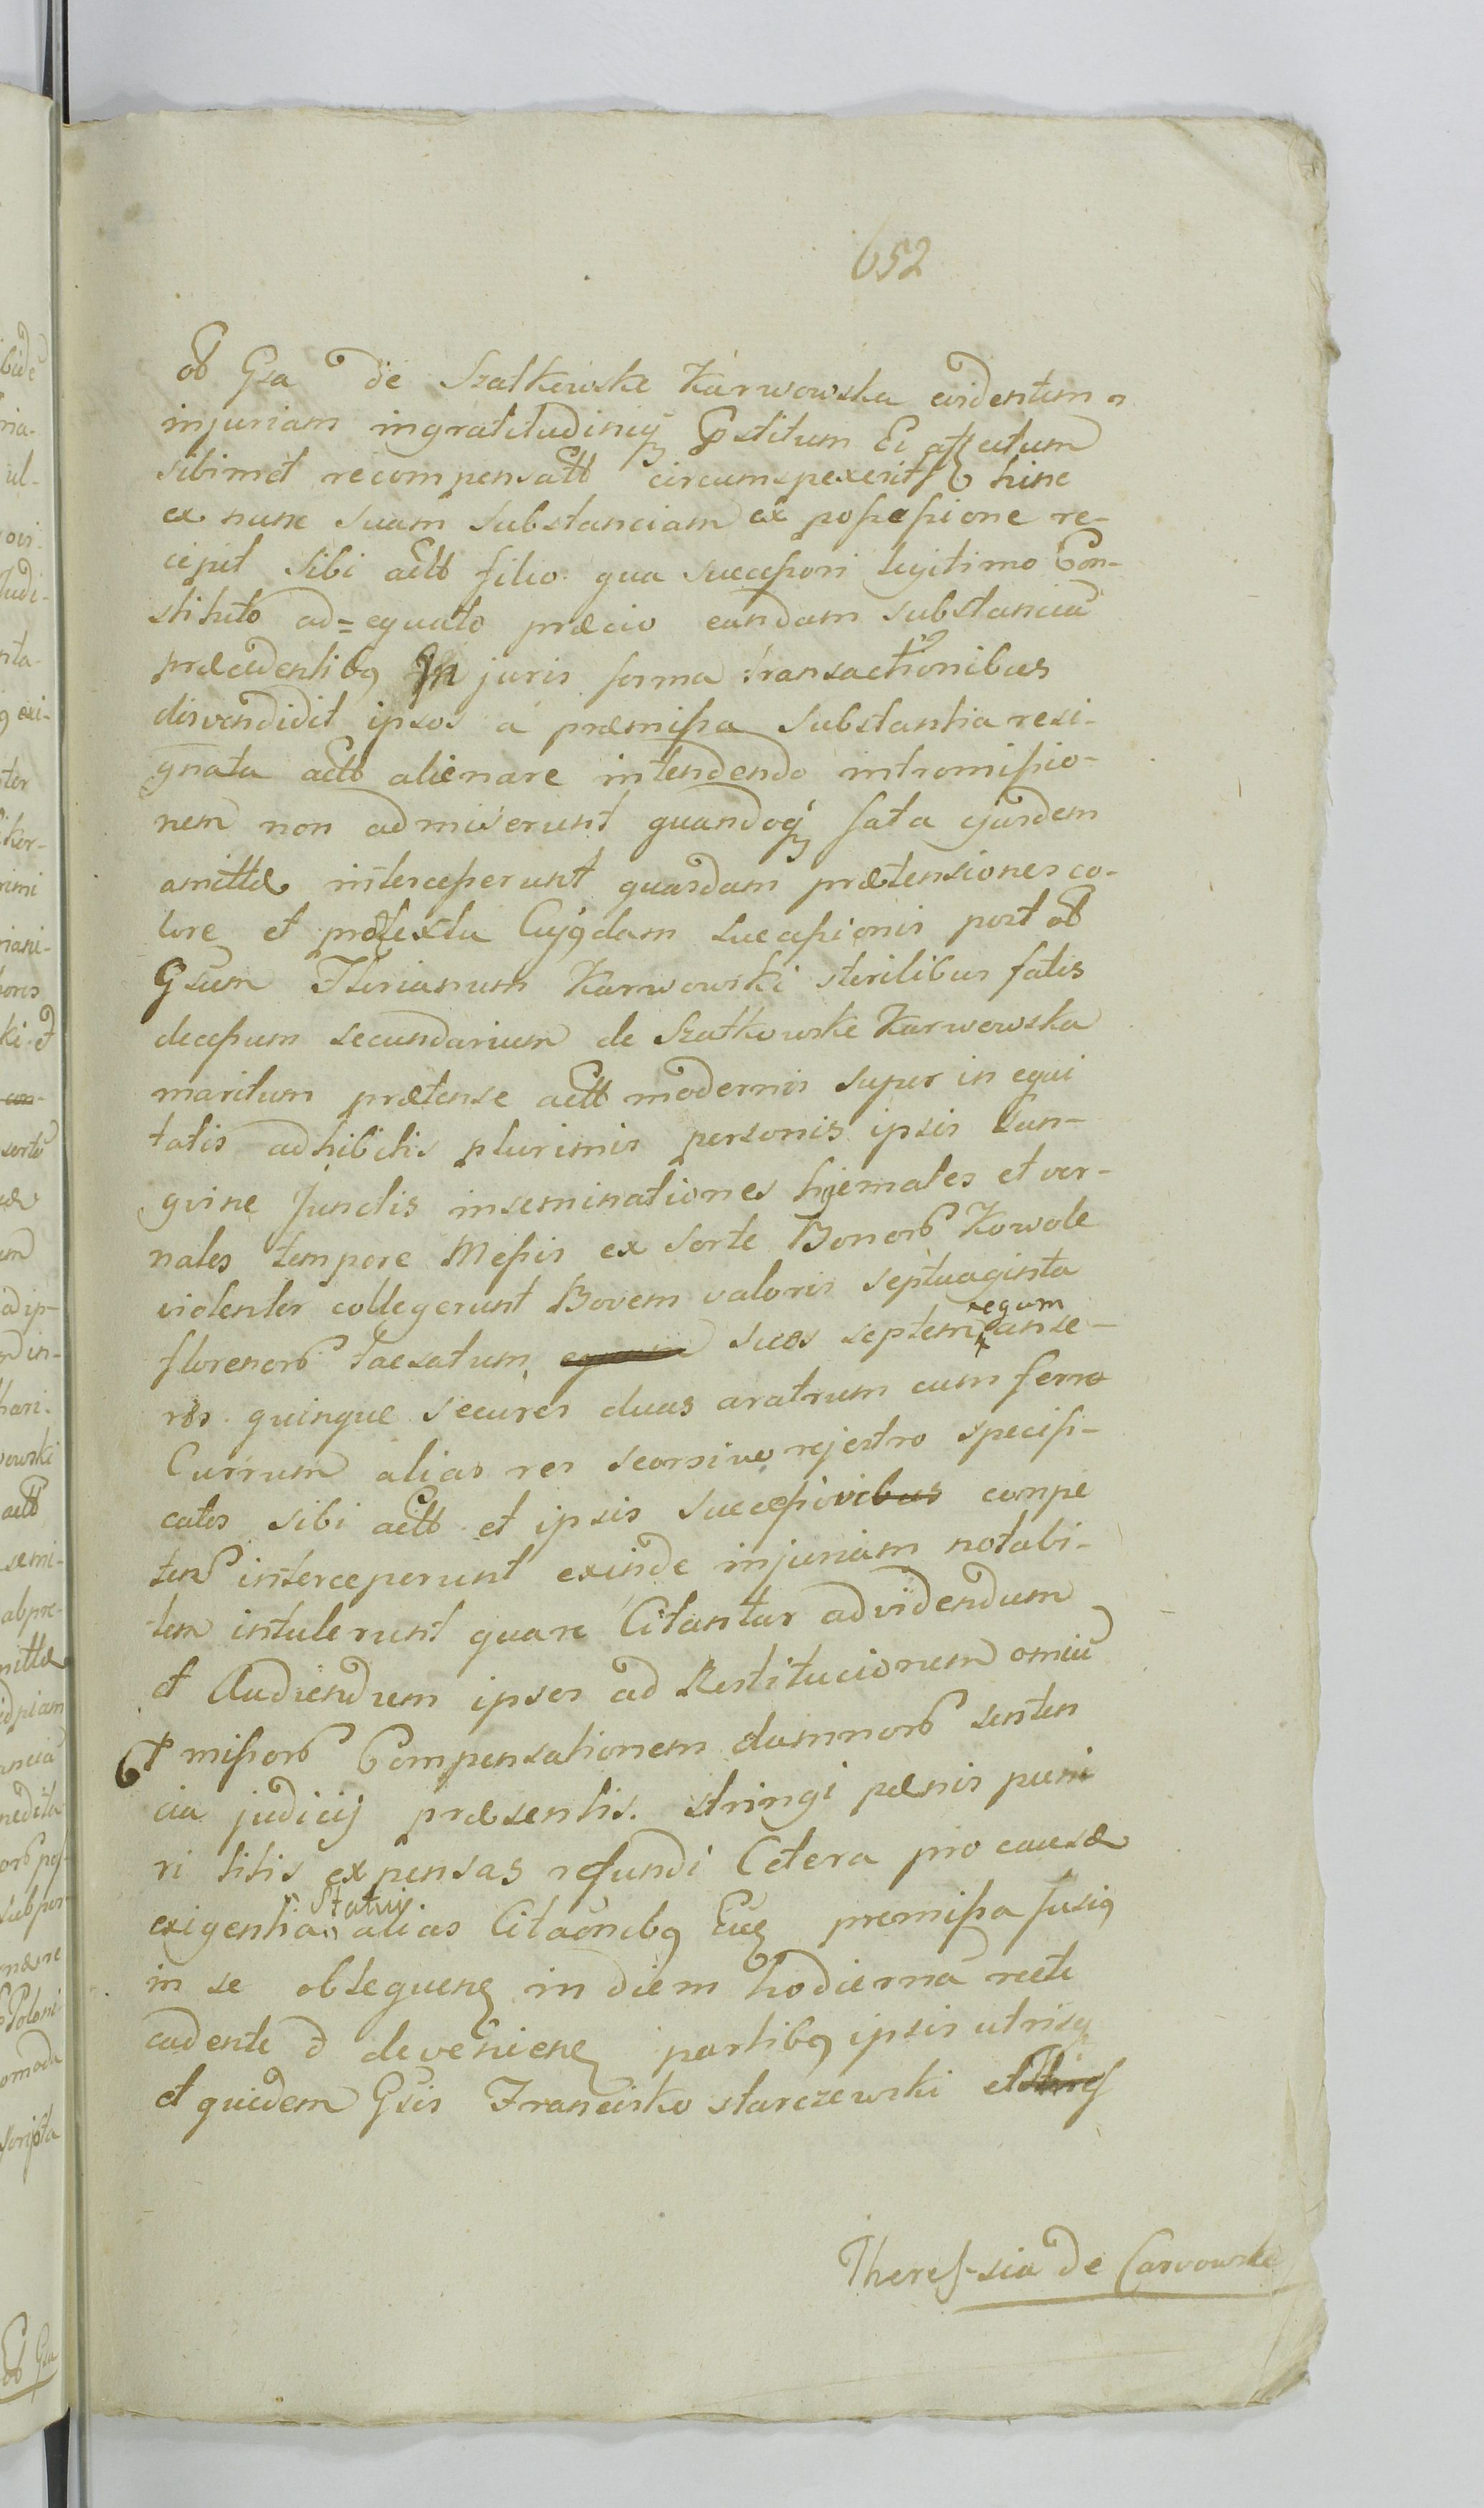 652
ob Gsa de Szatkowskie Karwowska evidentem
injuriam ingratitudinisq pstitum Ei affectum
sibimet recompensatt circumspexerit & hinc
ex nunc suam substanciam ex possessione re-
cepit sibi actt filio qua successori legitimo Con-
stituto ad=equato præcio eandam substanciã
præcedentibq In juris forma transactionibus
disvendidit ipsos a præmissa substantia resi-
gnata actt alienare intendendo intromissio-
nem non admiserunt quandoq sata ejusdem
amittæ intercesserunt quasdam prætensiones co-
lore et prætextu Cujqdam successionis post ob
Gsum Florianum Karwowski sterilibus fatis
decessum secundarium de Szatkowskie Karwowska
maritum prætense actt modernis super in equi
tatis adhibitis plurimis personis ipsis San-
gvine Junctis inseminationes hyemales et ver-
nales tempore Messis ex sorte Bonorb Kowale
violenter collegerunt Bovem valoris septuaginta
florenorb taxatum suos septem equm anse-
res quinque secures duas aratrum cum ferro
Currum alias res seorsivo rejestro specifi-
catas sibi actt et ipsis successivibus compe
ten interceperunt exinde injuriam notabi-
lem intulerunt quare Citantur ad videndum
et Audiendum ipsos ad Restitucionem omiũ
pmissorb Compensationem damnorb senten
cia judicij præsentis stringi pænis puni
ri litis expensas refundi Cetera pro causæ
exigentia Statui alias Citaõnibq Eq premissa fusiq
in se obloquenq in diem hodiernã recte
cadente & devenienq partibq ipsis utrisq
et quidem Gsis Francisko starczewski et
Theressia de Carvowskie
ob Gsa